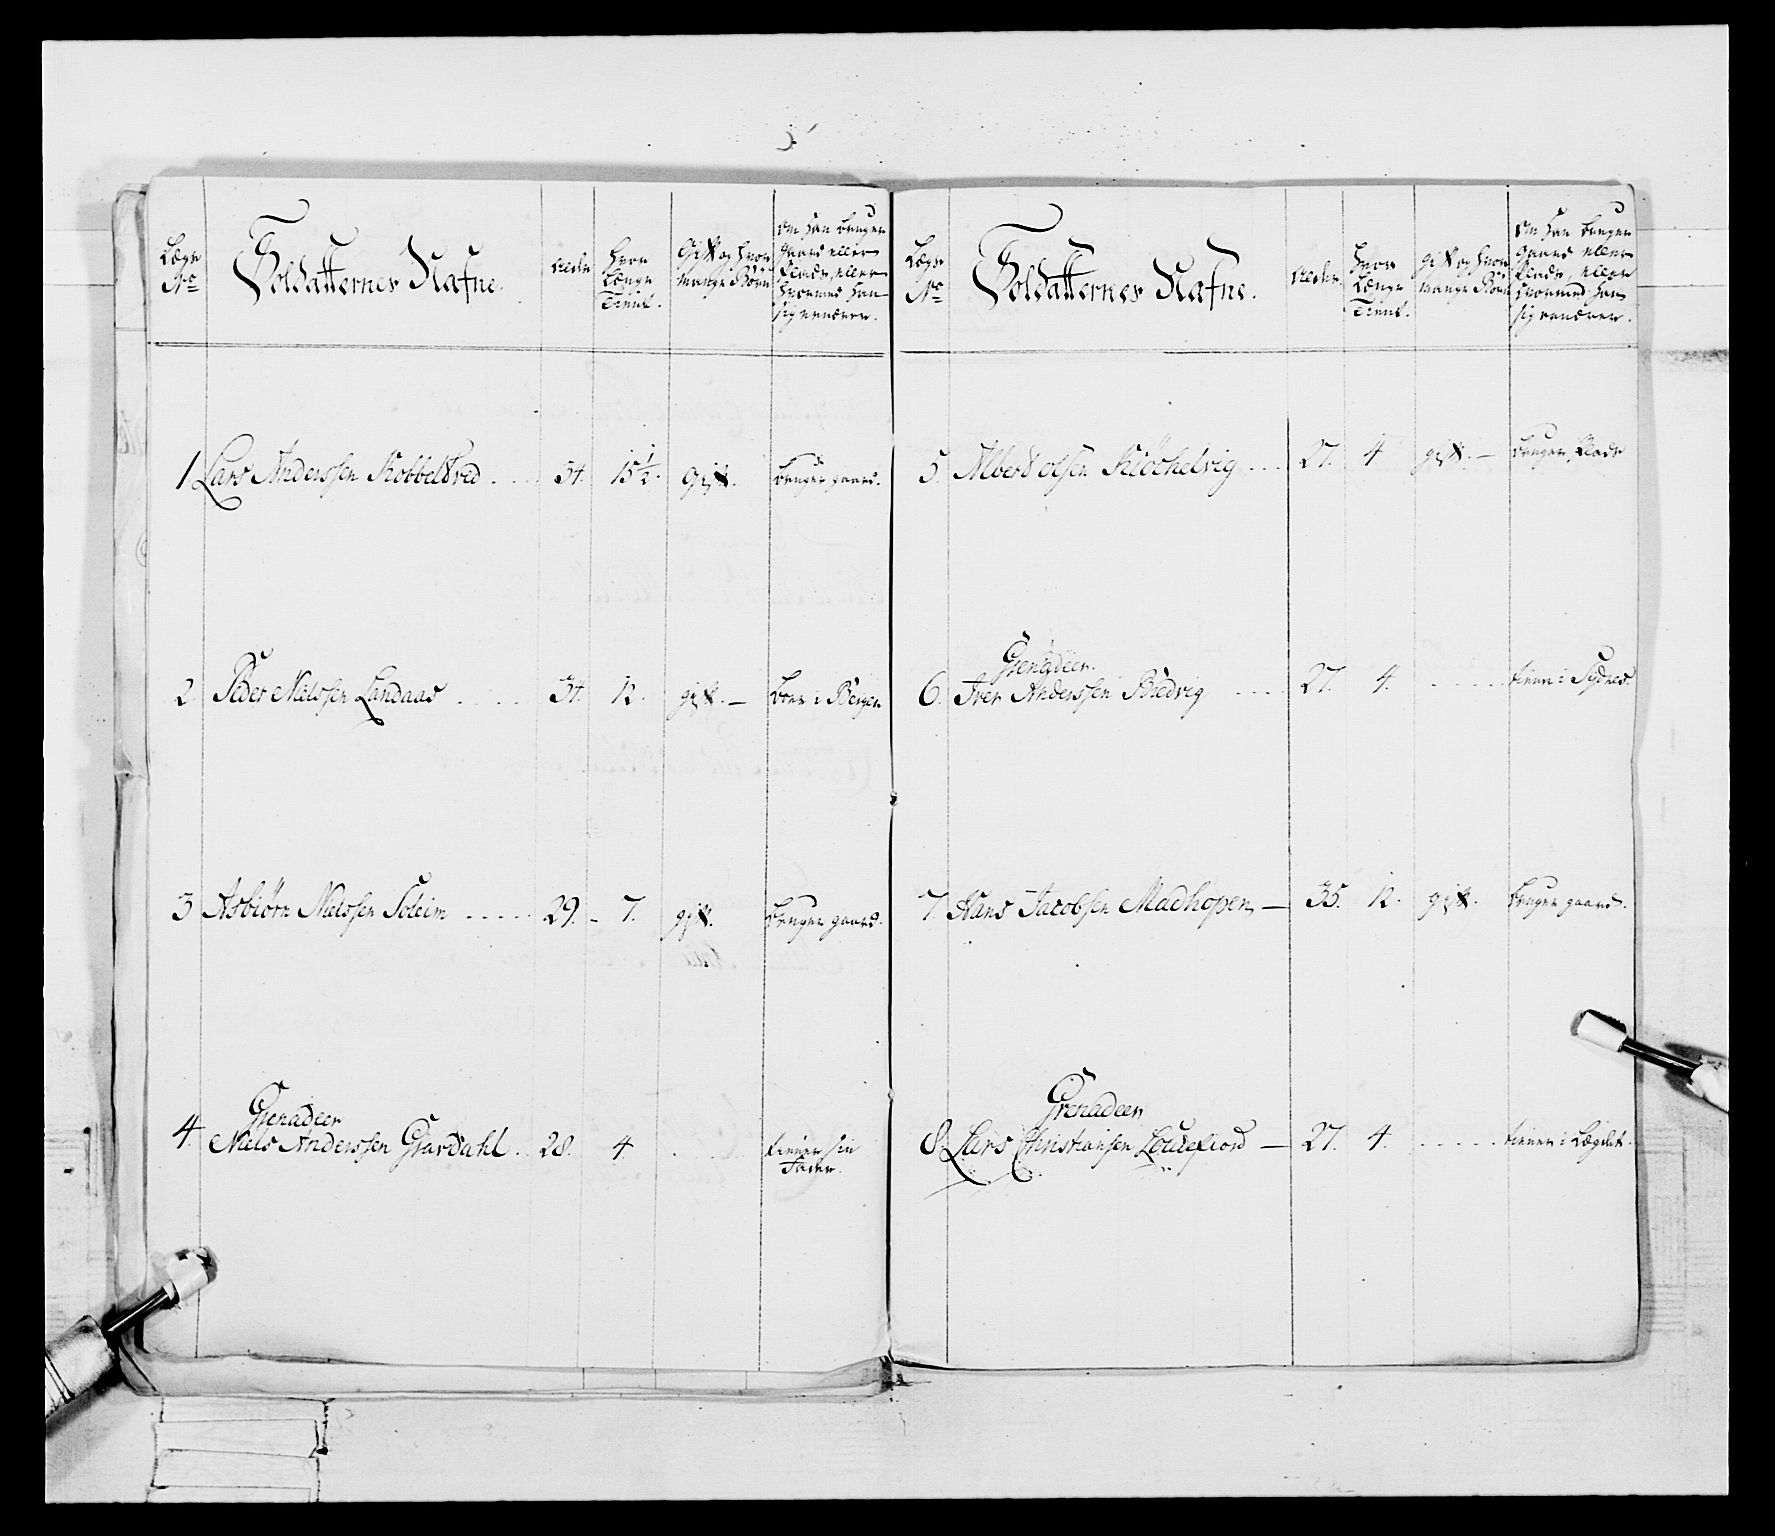 Lægs
No
Soldatternes Nafne.
Alder
Hvor
Længe
Tient.
Gift og hvor
mange Børn
Om han bruger
gaard eller
Plads, eller
hvormed han
sig ernærer.
1 Lars Anderssen Kobbeltved . . . 34. 15 1/2. Gift. bruger gaard.
2. Peder Nielssen Landaas . . . . 34. 12. gift. — boer i Bergen
3 Asbiørn Nielssen Soleim . . . . . 29. – 7. gift. bruger gaard.
Grenadeer
4. Niels Anderssen Giardahl . 28. 4. . . . tiener sin
Fader.
Lægs
No
Soldatternes Nafne.
Alder.
Hvor
Længe
Tient.
gift og hvor
mange Børn
Om han bruger
gaard eller
Plads, eller
hvormed han
sig ernærer.
5. Albert olsen Kiöchelvig . . . 27. 4 gift. — bruger Plads
Grenadeer.
6. Iver Anderssen Bredvig . . . . 27. 4. . . . . . tiener i Sydnes.
7. Hans Jacobsen Madhopen, — 35. 12. gift. bruger gaard.
Grenadeer
8. Lars Christiansen — 27. 4. . . . . . tiener i Lægdet.